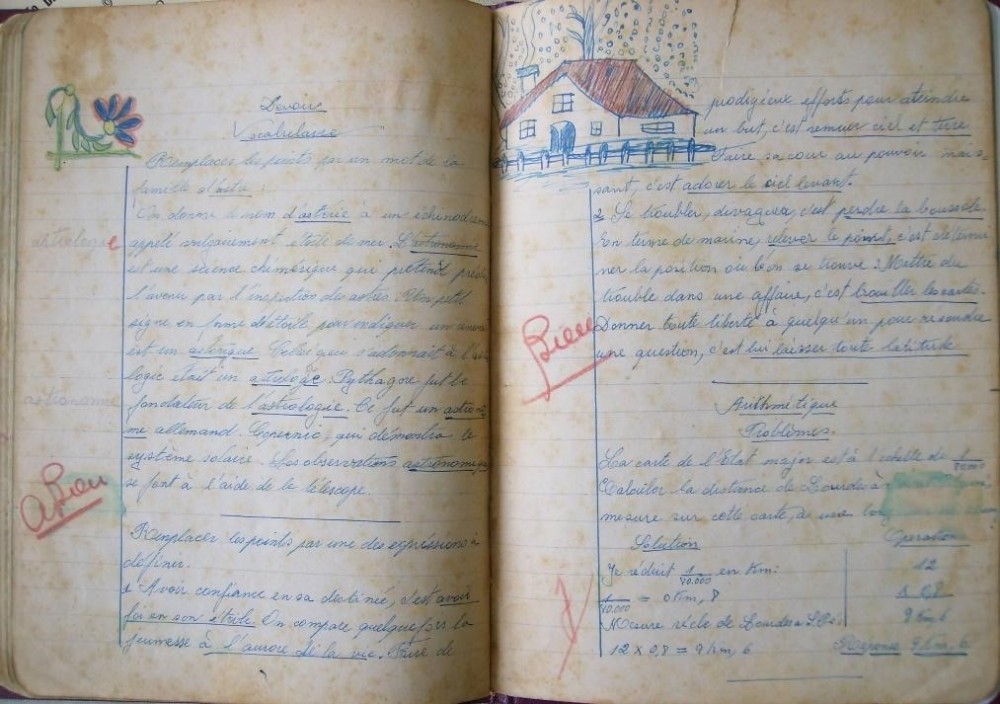 Devoir
Vocabulaire
Remplacez les points par un mot de la
famille d'astre :
On donne le nom d'astérie à un échinoderme
appelé vulgairement étoile de mer. L'astronomie
astrologie
est une science chimérique qui prétend prédire
l'avenir par l'inspection des astres. Un petit
signe en forme d'étoile pour indiquer un renvoi
est un astérique. Celui qui s'adonnait à l'astro
logie était un astrologue. Pythagore fut le
fondateur de l'astrologie. Ce fut un astrono
astronomie
me allemand. Copernic, qui démontra le
système solaire. Les observations astronomiques
se font à l'aide de le télescope.
A Bien
Remplacer les points par une des expressions à
définir.
1 Avoir confiance en sa destinée, c'est avoir
foi en son étoile. On compare quelquefois la
jeunesse à l'aurore de la vie. Faire de
prodigieux efforts pour atteindre
un but, c'est remuer ciel et terre
Faire sa cour au pouvoir nais-
sant, c'est adorer le ciel levant.
2 Se troubler, divaguer, c'est perdre la boussole.
En terme de marine, relever le point, c'est détermi
ner la position où l'on se trouve. Mettre du
trouble dans une affaire, c'est brouiller les cartes.
Donner toute liberté à quelqu'un pour résoudre
une question, c'est lui laisser toute latitude
Bien
Arithmétique
Problèmes.
La carte de l'Etat major est à l'échelle de 1/80000
Calculer la distance de Lourdes à
mesure sur cette carte, a une
Solution
Opération
Je réduit 1/80.000 en Km:
12
1/80.000 = 0 Km, 8
x 0,8
Mesure réelle de Lourdes à
9 Km 6
12 x 0,8 = 9 Km, 6
Réponse 9 Km 6